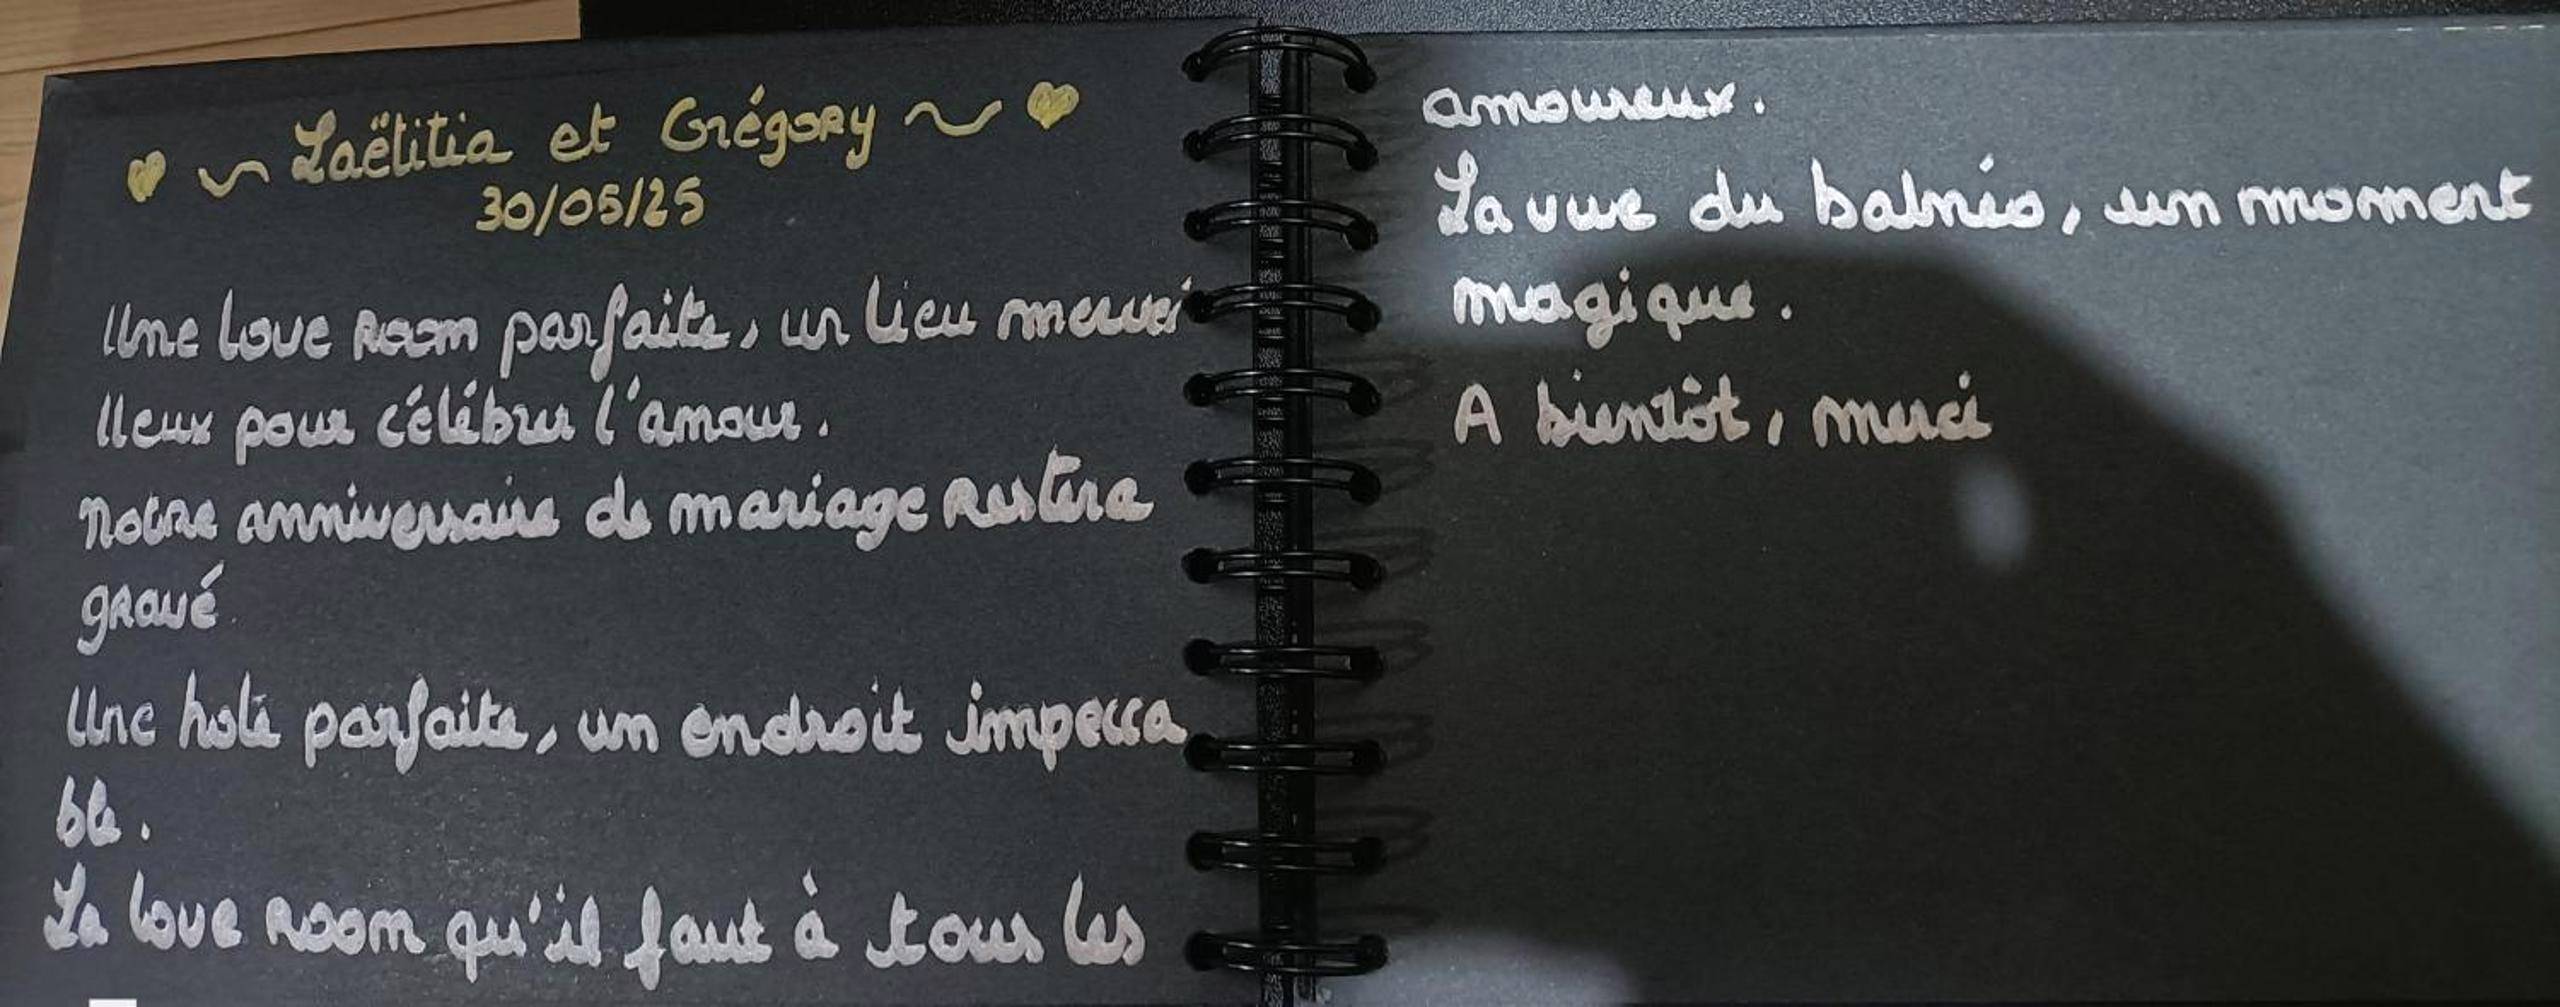 Laëtitia et Grégory
30/05/25
Une love room parfaite, un lieu mervei
lleux pour célébrer l'amour.
Notre anniversaire de mariage restera
gravé.
Une hote parfaite, un endroit impecca
ble.
La love room qu'il faut à tous les
amoureux.
La vue du balnéo, un moment
magique.
A bientôt, merci